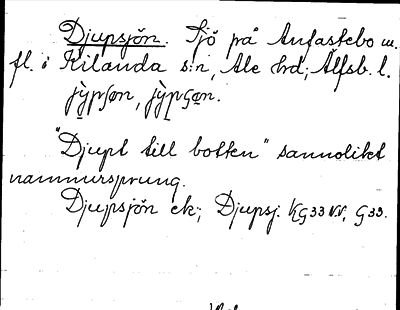 Djupsjön. Sjö på Anfastebo m.
fl. i Kilanda s:n, Ale hrd; Älfsb. l.
"Djupt till botten" sannolikt
namnursprung.
Djupsjön ek; Djupsj. KG 33 VV, G 33.